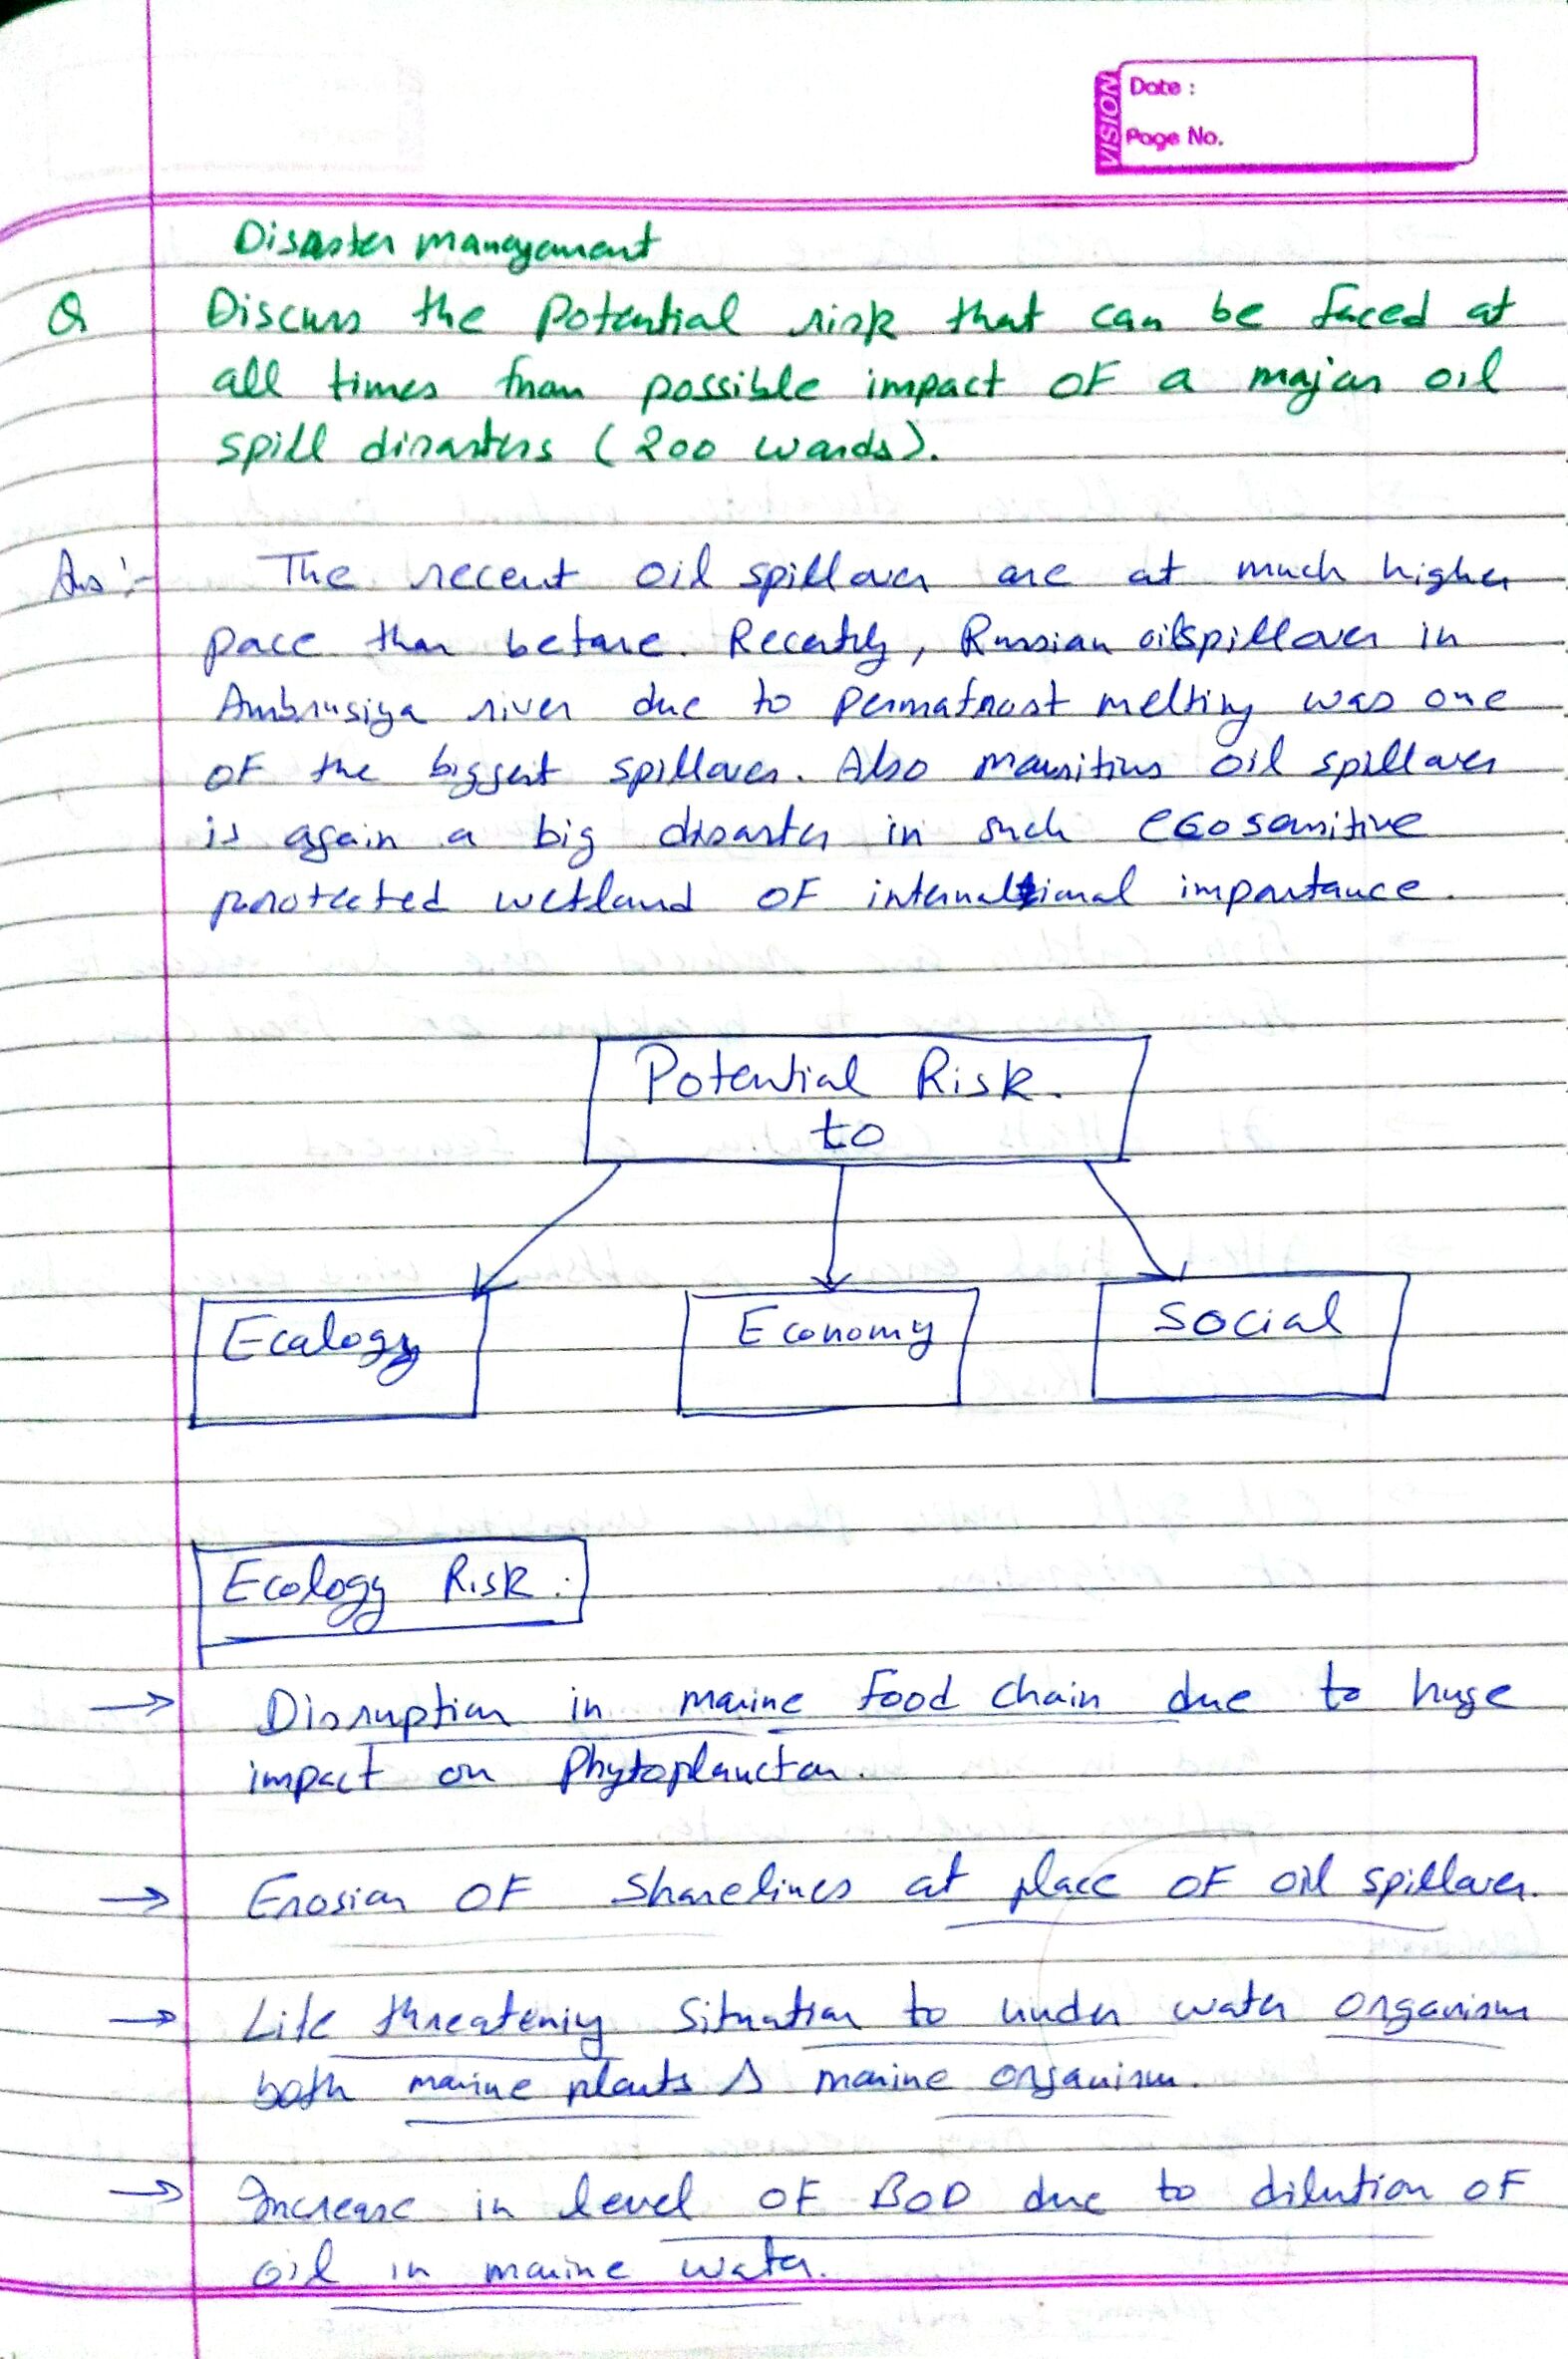 VISION
Date :
Page No.
Disaster management
Q Discuss the Potential risk that can be faced at
all times from possible impact of a major oil
spill disasters (200 words).
Ans:- The recent oil spillover are at much higher
pace than before. Recently, Russian oil spillover in
Ambrusiya river due to permafrost melting was one
of the biggest spillover. Also mauritius oil spillover
is again a big disaster in such ecosensitive
protected wetland of international importance.
Potential Risk.
to
Ecology Economy Social
Ecology Risk :
→ Disruption in marine food chain due to huge
impact on Phytoplancton.
→ Erosion of Shorelines at place of oil spillover.
→ Life threatening situation to under water organism
both marine plants & marine organism.
→ Increase in level of BOD due to dilution of
oil in marine water.